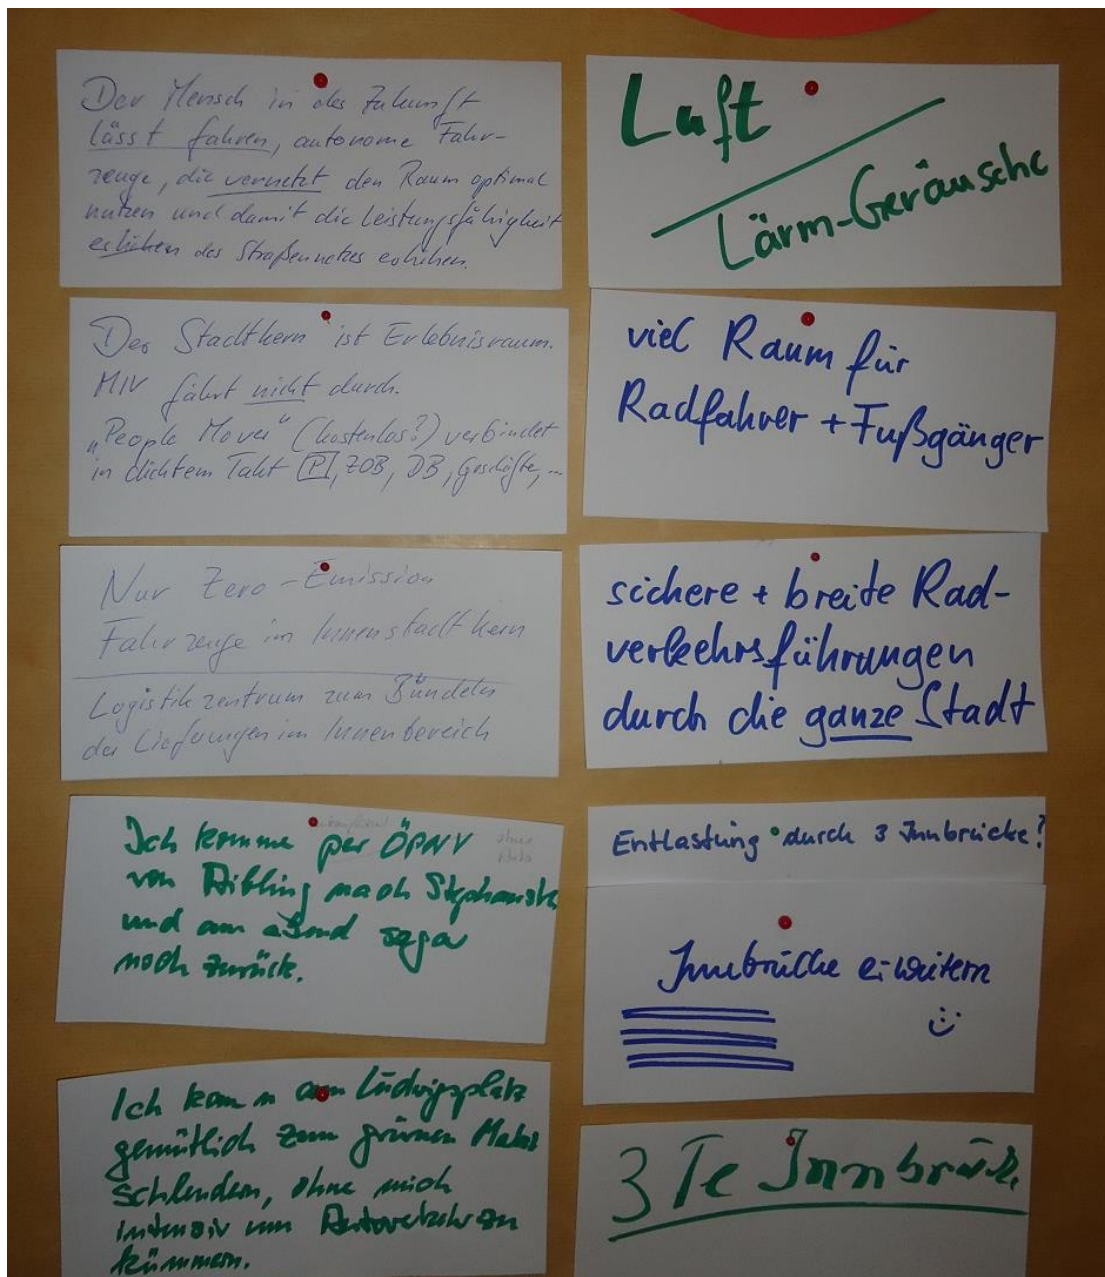 Der Mensch in der Zukunft
lässt fahren, autonome Fahr-
zeuge, die vernetzt den Raum optimal
nutzen und damit die Leistungsfähigkeit
erhöhen des Straßennetzes erhöhen.
Der Stadtkern ist Erlebnisraum.
MIV fährt nicht durch.
"People Mover" (kostenlos?) verbindet
in dichtem Takt P, ZOB, DB, Geschäfte, ...
Nur Zero-Emission
Fahrzeuge im Innenstadtkern
Logistikzentrum zum Bündeln
der Lieferungen im Innenbereich
Ich komme per ÖPNV
ohne
Auto
von Aibling nach Stephanskir
und am abend sogar
noch zurück.
Ich kann am Ludwigsplatz
gemütlich zum grünen Markt
schlendern, ohne mich
intensiv um Autoverkehr zu
kümmern.
Luft
Lärm-Geräusche
viel Raum für
Radfahrer + Fußgänger
sichere + breite Rad-
verkehrsführungen
durch die ganze Stadt
Entlastung durch 3 Innbrücke?
Innbrücke erweitern
3 Te Innbrück